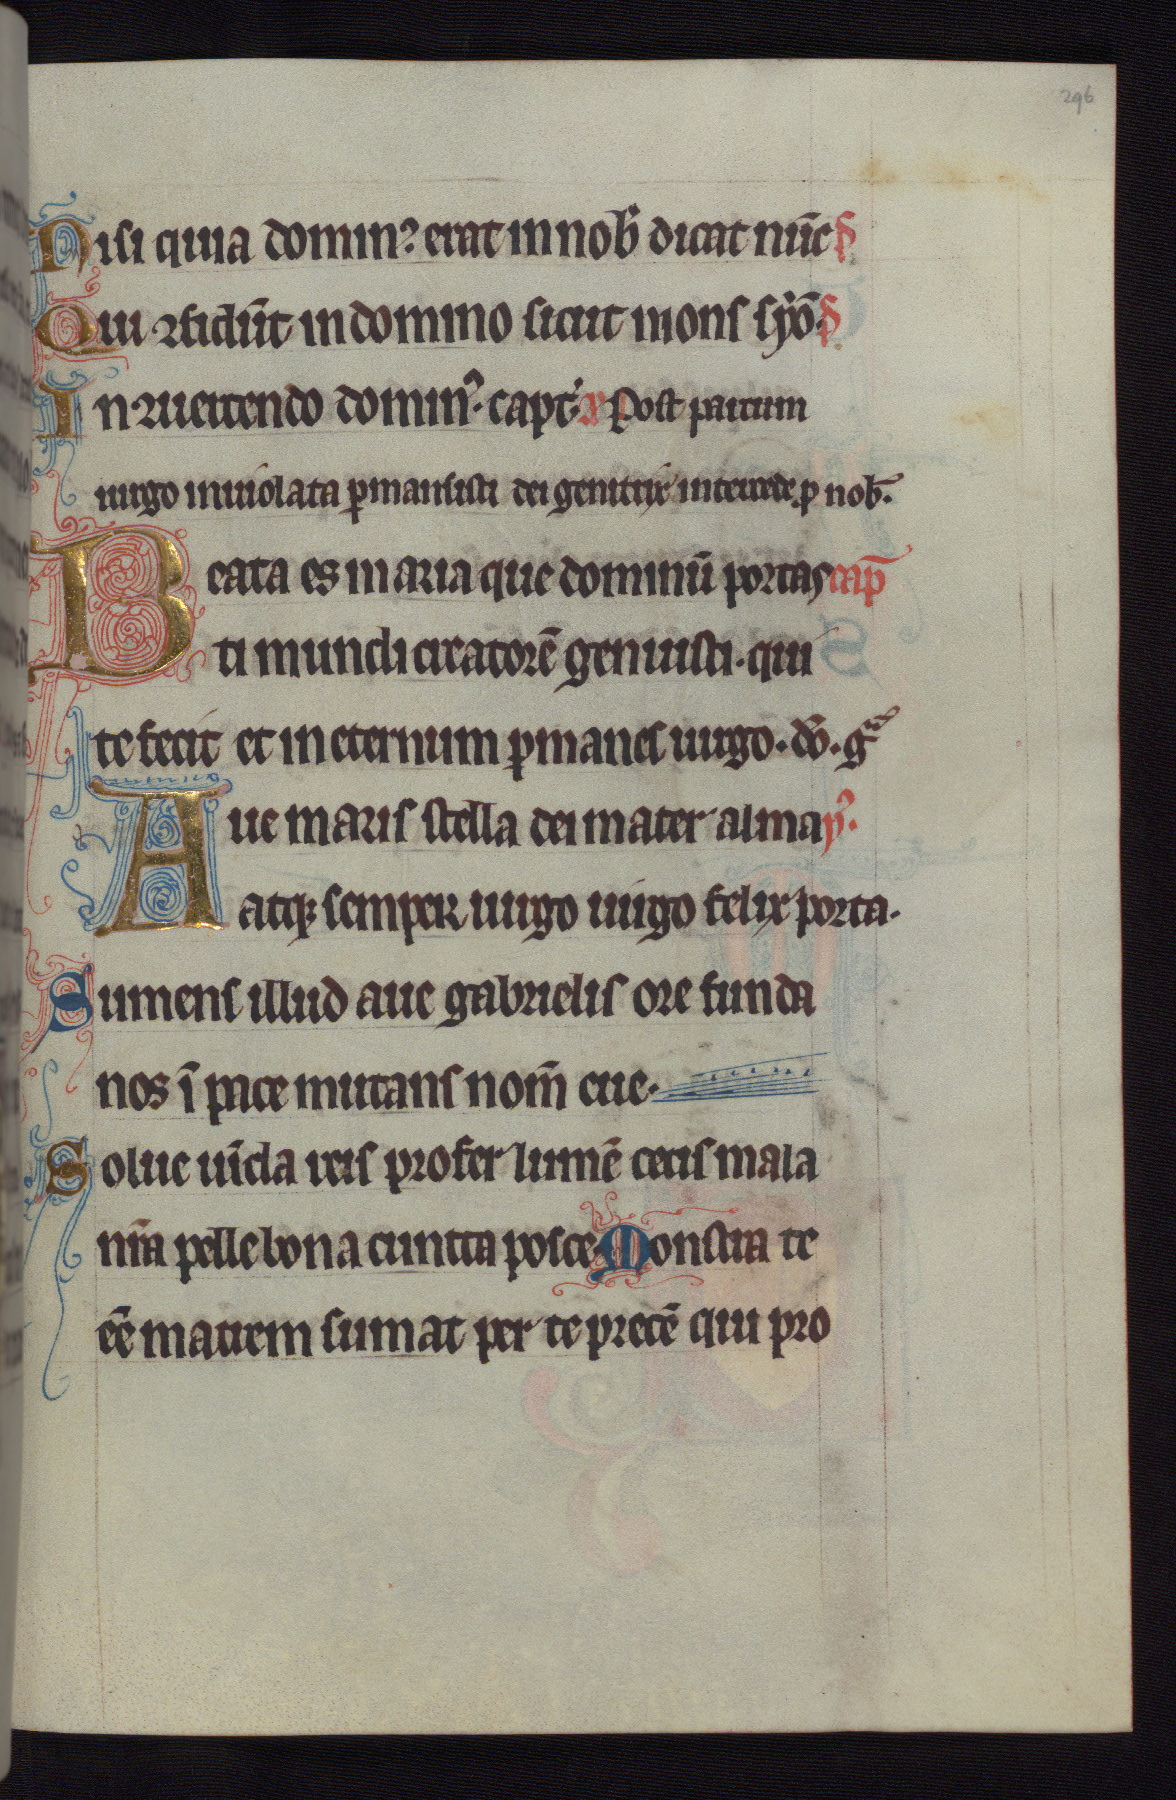 296
Nisi quia domin⁹ erat in nob̄ dicat nūc p̄s
Qui ꝯfidūt in domino sicut mons syō. p̄s
In ꝯuertendo domin⁹. capt̄. Post partum
uirgo inuiolata ꝑmansisti dei genitrix intercede ꝓ nob̄.
Beata es maria que dominū portas cap̄
ti mundi creatorē genuisti. qui
te fecit et in eternum ꝑmanes uirgo. dō. gͣ
Aue maris stella dei mater alma ẏ.
atqꝫ semper uirgo uirgo felix porta.
Sumens illud aue gabrielis ore funda
nos ī pace mutans nom̄ eue.
Solue uīcla reis profer lumē cecis mala
nr̄a pelle bona cuncta posce Monstra te
eē matrem sumat per te precē qui pro